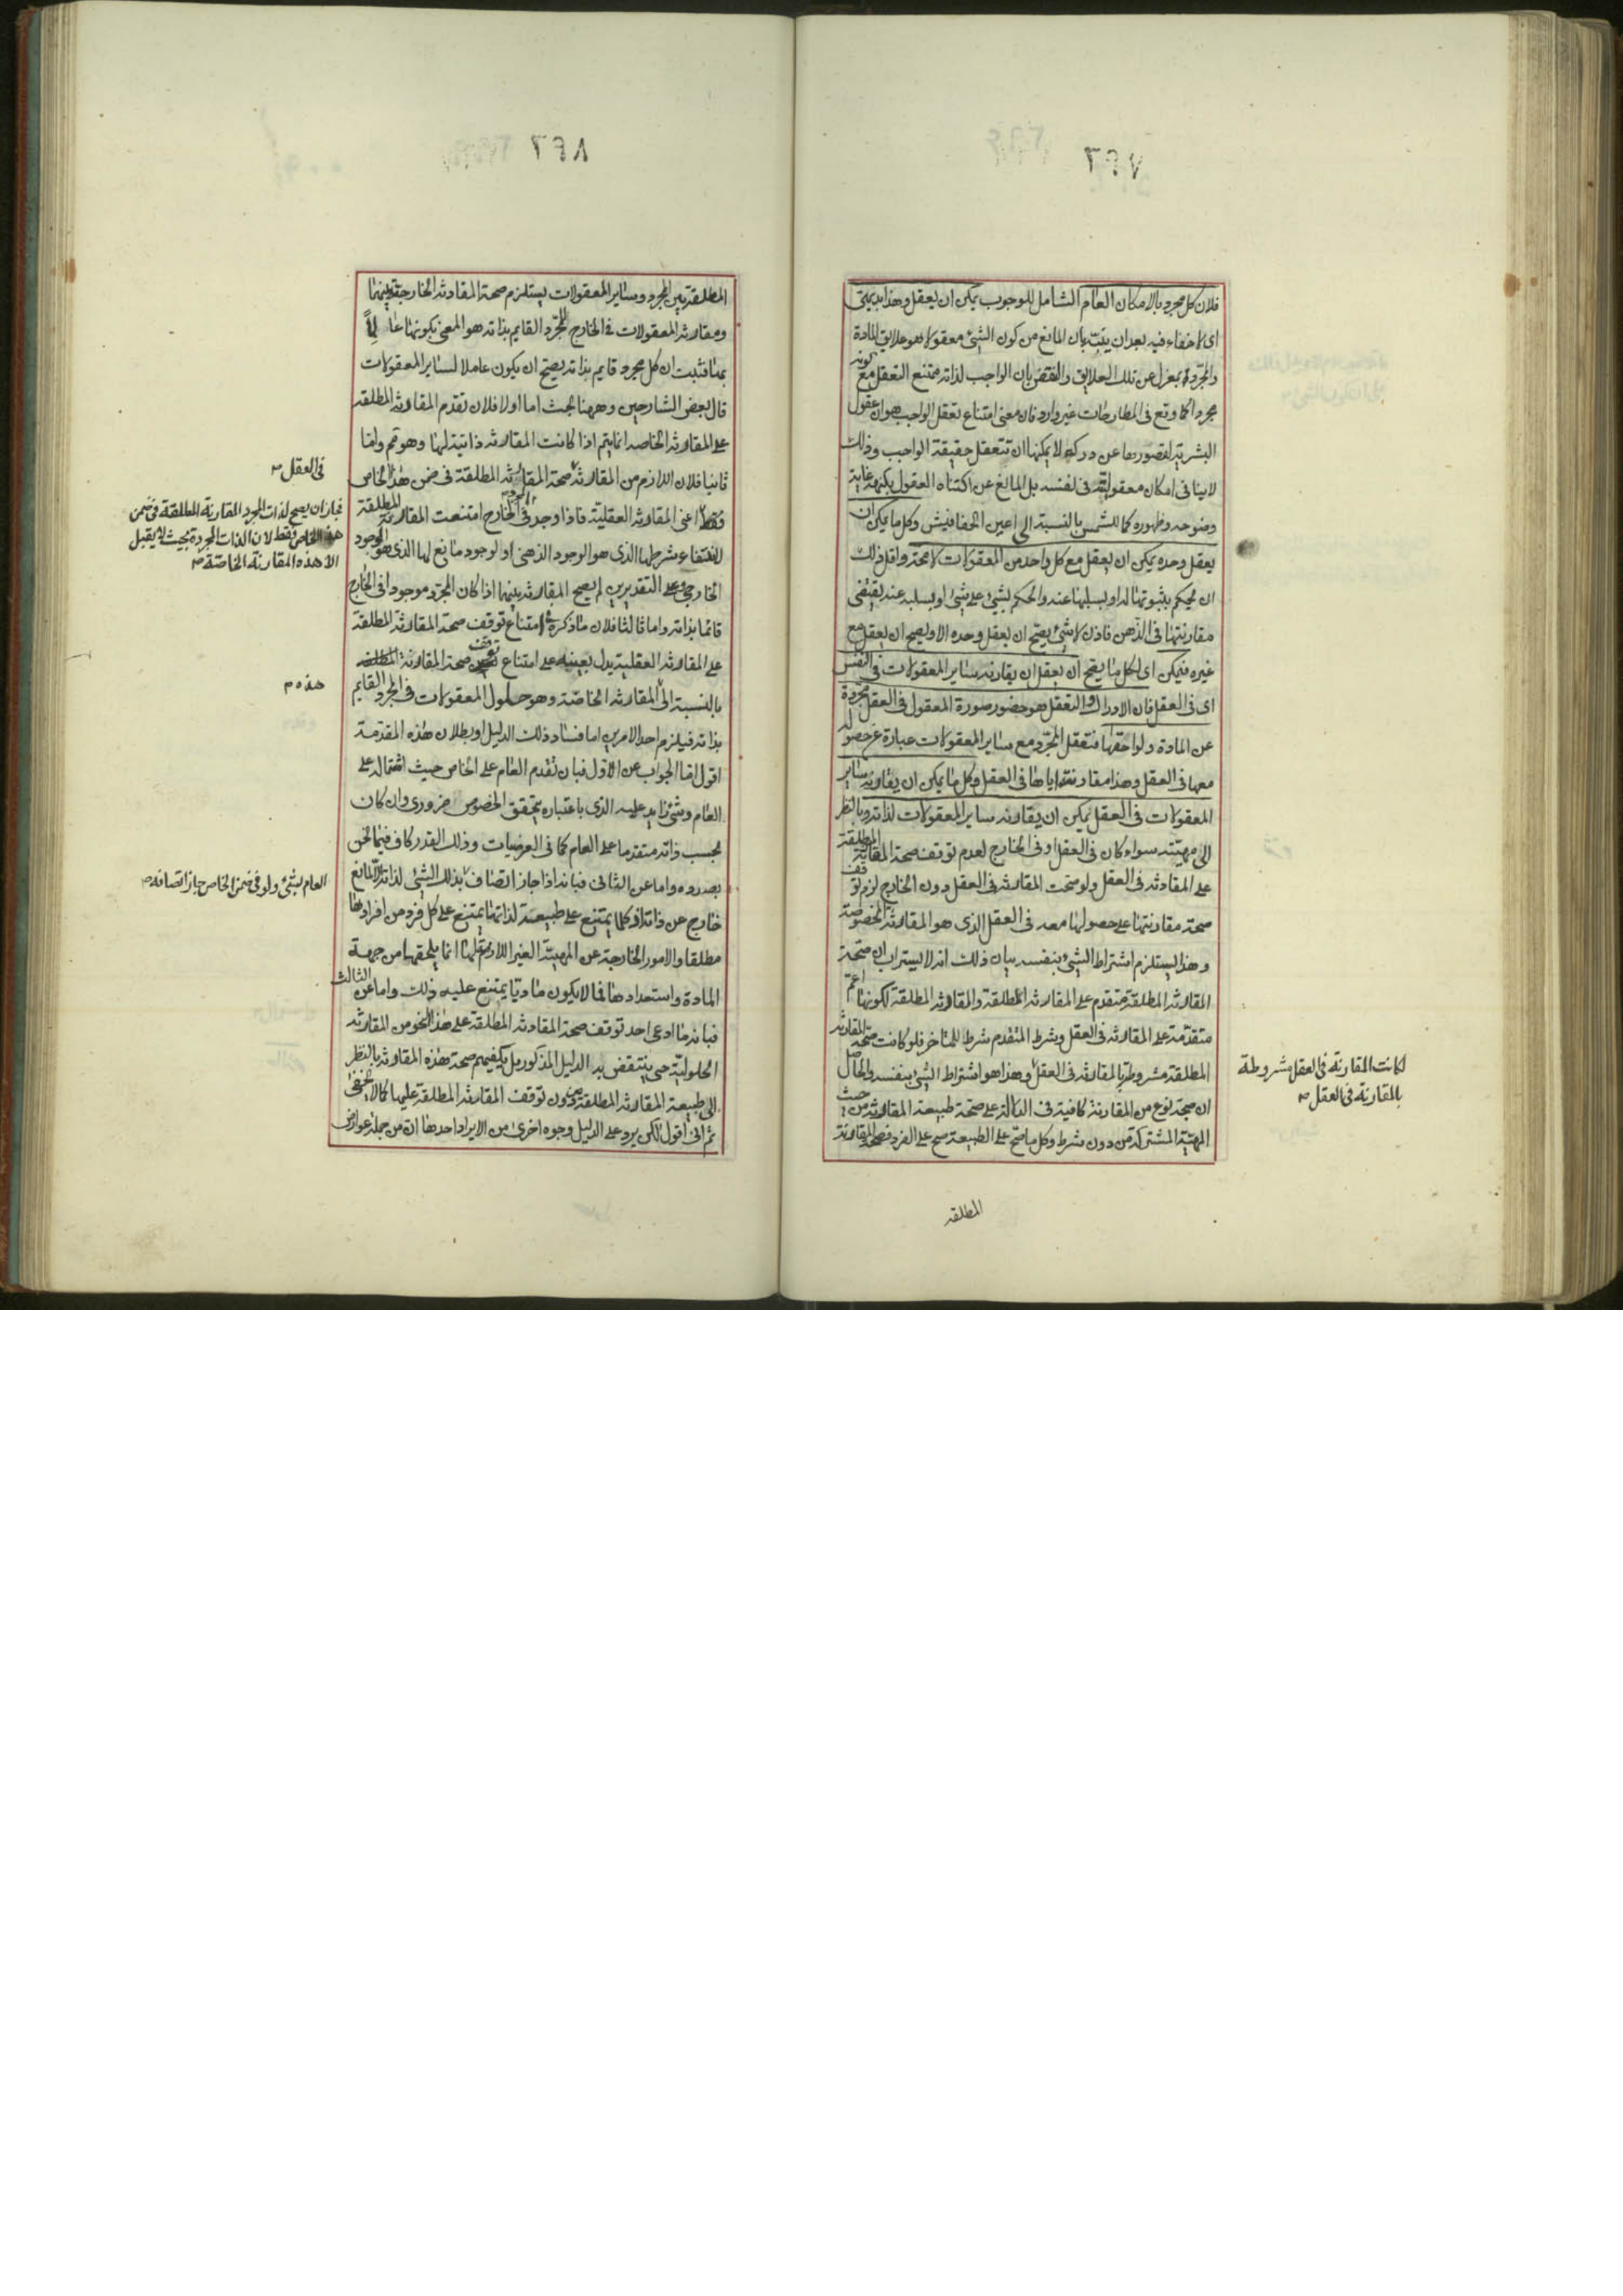 فلان كل مجرد بالامكان العام الشامل للوجوب يمكن ان يعقل وهذا بديهى
اى لا خفاء فيه بعد ان يثبت بان المانع من كون الشئ معقولا هو علايق المادة
والمجرد بمعزل عن تلك العلايق والنقض بان الواجب لذاته ممتنع التعقل مع كونه
مجردا كما وقع فى المطارحات غير وارد فان معنى امتناع تعقل الواجب هو ان عقول
البشرية لقصورها عن دركه لا يمكنها ان تتعقل حقيقة الواجب وذلك
لا ينافى امكان معقوليته فى نفسه بل المانع عن اكتناه العقول بكنهه غاية
وضوحه وظهوره كما للشمس بالنسبة الى اعين الخفافيش وكل ما يمكن ان
يعقل وحده يمكن ان يعقل مع كل واحد من المعقولات لا محة واقل ذلك
ان يحكم بثبوتها له او بسلبها عنه والحكم بشئ على شئ او بسلبه عنه يقتضى
مقارنتها فى الذهن فاذن لا شئ يصح ان يعقل وحده الا ويصح ان يعقل مع
غيره فيمكن اى لكل ما يصح ان يعقل ان يقارنه ساير المعقولات فى النفس
اى فى العقل فان الادراك والتعقل هو حضور صورة المعقول فى العقل مجردة
عن المادة ولواحقها فتعقل المجرد مع ساير المعقولات عبارة عن حصوله
معها فى العقل وهذا مقارنته اياها فى العقل وكل ما يمكن ان يقارنه ساير
المعقولات فى العقل يمكن ان يقارنه ساير المعقولات لذاته وبالنظر
الى مهيته سواء كان فى العقل او فى الخارج لعدم توقف صحة المقارنة المطلقة
على المقارنة فى العقل ولو صحت المقارنة فى العقل دون الخارج لزم توقف
صحة مقارنتها على حصولها معه فى العقل الذى هو المقارنة المخصوصة
وهذا يستلزم اشتراط الشئ بنفسه بيان ذلك انه لا يستراب ان صحة
المقارنة المطلقة متقدم على المقارنة المطلقة والمقارنة المطلقة لكونها اعم
متقدمة على المقارنة فى العقل وشرط المتقدم شرط للمتاخر فلو كانت صحة المقارنة
المطلقة مشروطة بالمقارنة فى العقل وهذا هو اشتراط الشئ بنفسه والحاصل
ان صحة نوع من المقارنة كافية فى الدلالة على صحة طبيعة المقارنة من حيث
المهية المشتركة من دون شرط وكل ما صح على الطبيعة صح على الفرد فصحة المقارنة
لكانت المقارنة فى العقل مشروطة
بالمقارنة فى العقل صح
المطلقه
المطلقة بين المجرد وساير المعقولات يستلزم صحة المقارنة الخارجية بينهما
ومقارنة المعقولات فى الخارج للمجرد القايم بذاته هو المعنى بكونها عالما
بها فثبت ان كل مجرد قايم بذاته يصح ان يكون عاملا لساير المعقولات
قال بعض الشارحين وههنا بحث اما اولا فلان تقدم المقارنة المطلقه
على المقارنة الخاصه انما يتم اذا كانت المقارنه ذاتية لها وهو مم واما
ثانيا فلان اللازم من المقارنة صحة المقارنة المطلقة فى ضمن هذا الخاص
فقط اعنى المقارنة العقلية فاذا وجد فى الخارج امتنعت المقارنة المطلقة
لانتفاء شرطها الذى هو الوجود الذهنى او لوجود مانع لها الذى هو الوجود
الخارجى وعلى التقديرين لم يصح المقارنة بينهما اذا كان المجرد موجودا فى الخارج
قائما بذاته واما ثالثا فلان ما ذكره امتناع توقف صحة المقارنة المطلقة
على المقارنة العقلية يدل بعينه على امتناع توقف صحة المقارنة المطلقه
بالنسبة الى المقارنة الخاصة وهو حلول المعقولات فى المجرد القايم
بذاته فيلزم احد الامرين اما فساد ذلك الدليل او بطلان هذه المقدمة
اقول اما الجواب عن الاول فبان تقدم العام على الخاص حيث اشتماله على
العام وشئ زايد عليه الذى باعتباره يتحقق الخصوص ضرورى وان كان
بحسب ذاته متقدما على العام كما فى العرضيات وذلك القدر كاف فيما نحن
بصدده واما عن الثانى فبانه اذا جاز اتصاف بذلك الشئ لذاته لا لمانع
خارج عن ذاته اذ كلما يمتنع على طبيعة لذاتها يمتنع على كل فرد من افرادها
مطلقا والامور الخارجة عن المهية الغير اللازمة لها انما يلحقها من جهة
المادة واستعدادها فما لا يكون ماديا يمتنع عليه ذلك واما عن الثالث
فبانه ما ادعى احد توقف صحة المقارنة المطلقة على هذا النحو من المقارنة
الحلولية حتى ينتقض به الدليل المذكور بل يكفيهم صحة هذه المقارنة بالنظر
الى طبيعة المقارنة المطلقة من دون توقف المقارنة المطلقة عليها كما لا يخفى
ثم انى اقول لكن يرد على الدليل وجوه اخرى من الايراد احدها ان من جملة عوارض
فى العقل صح
فجاز ان يصح لذات المجرد المقارنة المطلقة فى ضمن
هذا الخاص فقط لان الذات المجردة بحيث لا يقبل
الا هذه المقارنة الخاصة صح
هذه م
العام بشئ ولو فى ضمن الخاص جاز اتصافه صح